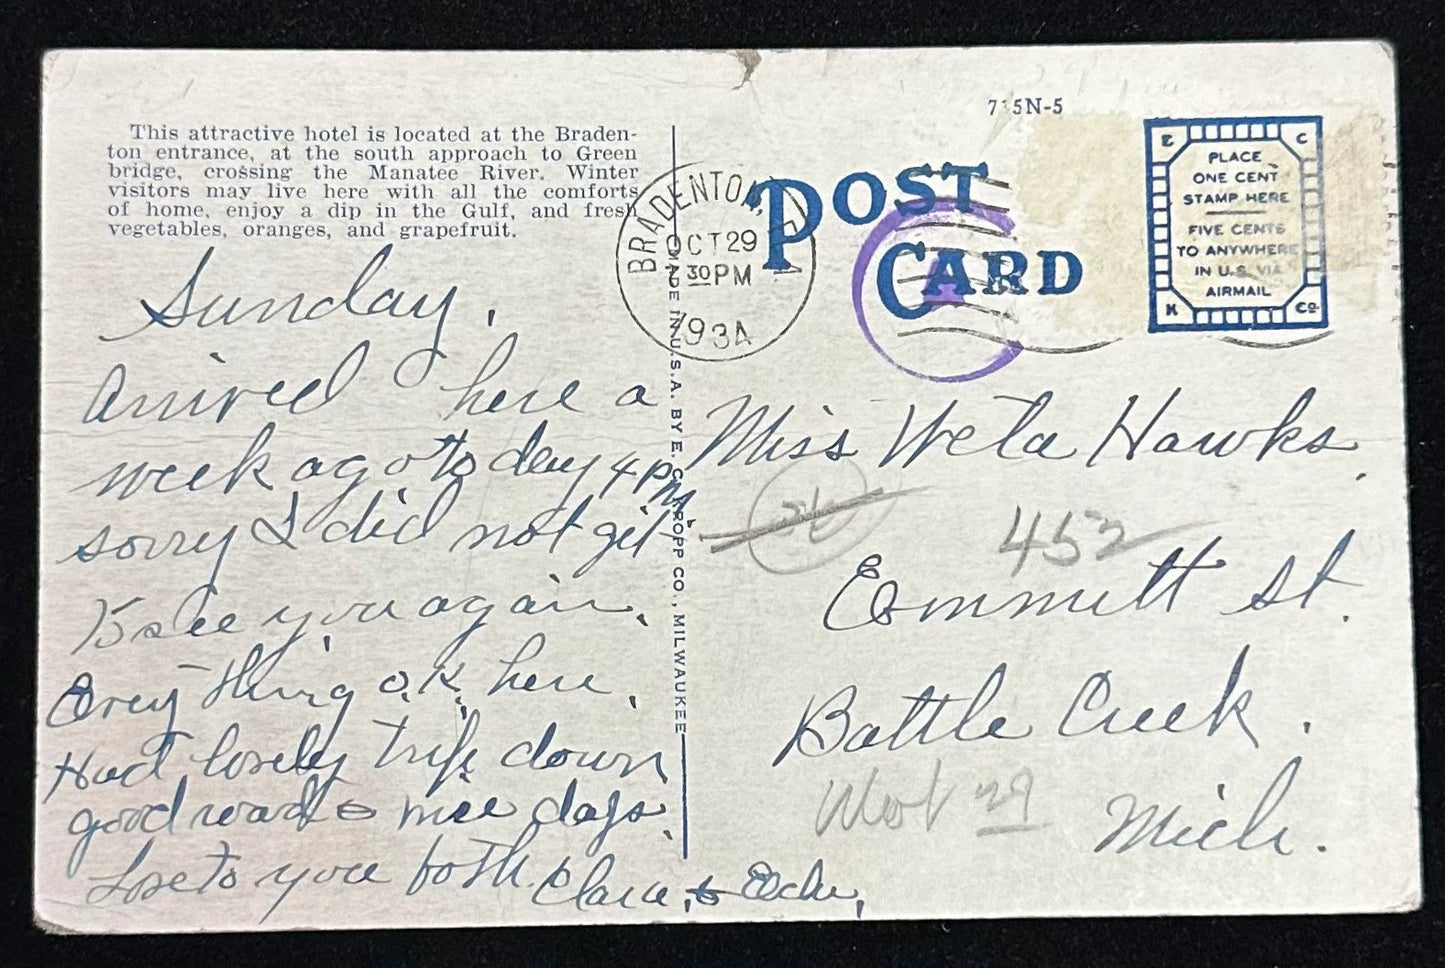 This attractive hotel is located at the Braden-
ton entrance, at the south approach to Green
bridge, crossing the Manatee River. Winter
visitors may live here with all the comforts
of home, enjoy a dip in the Gulf, and fresh
vegetables, oranges, and grapefruit.
Sunday,
Arrived here a
week ago today 4 PM
sorry I did not get
to see you again,
Every thing O.K. here,
Had lovely trip down
good roads & nice days,
Love to you both. Clara, &
MADE IN U.S.A. BY E. C. KROPP CO., MILWAUKEE
BRADENTON,
OCT 29
30 PM
193
715N-5
POST
CARD
A
E C
PLACE
ONE CENT
STAMP HERE
FIVE CENTS
TO ANYWHERE
IN U.S. VIA
AIRMAIL
K CO
Miss Weta Hawks
452
Emmitt St.
Battle Creek.
29
Mich.